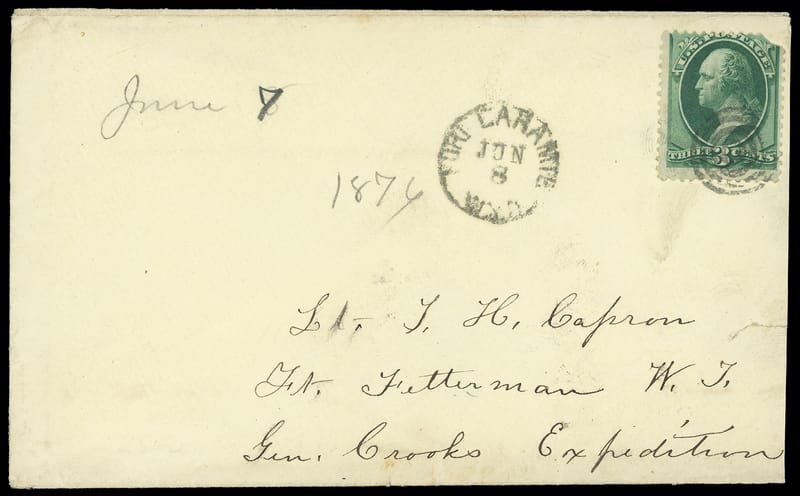 U.S. POSTAGE
THREE 3 CENTS
June 7
1876
FORT LARAMIE
JUN
8
WYO.
Lt. T. H. Capron
Ft. Fetterman W. T.
Gen. Crooks Expedition